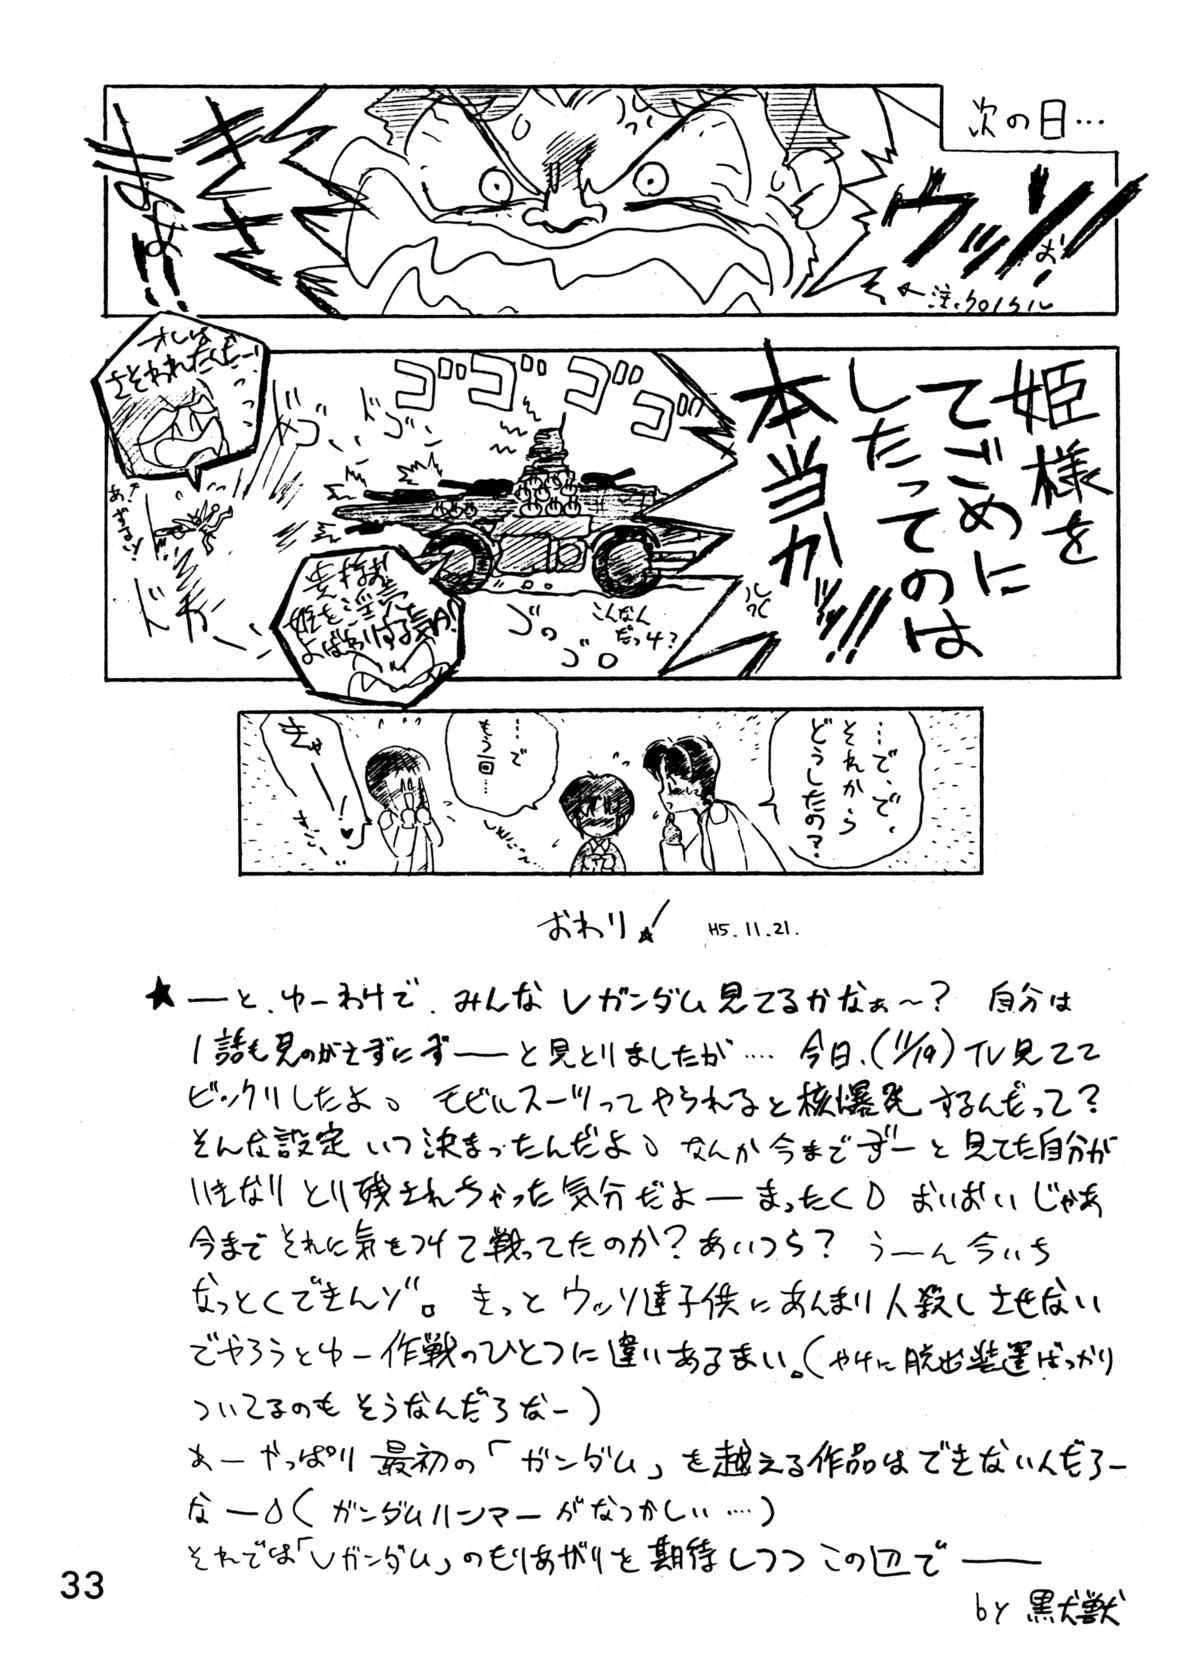 次の日…
ウッソ
お!
きさまぁ!!
注・クロノクル
姫様を
てごめに
したってのは
本当か!!
ゴゴゴゴ
オレは
さそわれたんだー!
ドゴ
ドゴ
ドカ
こんなん
だっけ?
…で、で、
それから
どうしたの?
…で
もう一回…
きゃー!♥
おわり!
H5.11.21.
★ーと、ゆーわけで、みんなVガンダム見てるかなぁ〜? 自分は
1話も見のがさずにずーーと見とりましたが…. 今日、(11/19) TV見てて
ビックリしたよ。モビルスーツってやられると核爆発するんだって?
そんな設定いつ決まったんだよ。なんか今までずーと見てた自分が
いきなりとり残されちゃった気分だよーまったく。おいおいじゃあ
今までそれに気をつけて戦ってたのか?あいつら? うーん今いち
なっとくできんゾ。きっとウッソ達子供にあんまり人殺しさせない
でやろうとゆー作戦のひとつに違いあるまい。(やけに脱出装置ばっかり
ついてるのもそうなんだろなー)
あーやっぱり最初の「ガンダム」を越える作品はできないんだろー
なー。(ガンダムハンマーがなつかしい….)
それでは「Vガンダム」のもりあがりを期待しつつこの辺でーー
by 黒犬獣
33